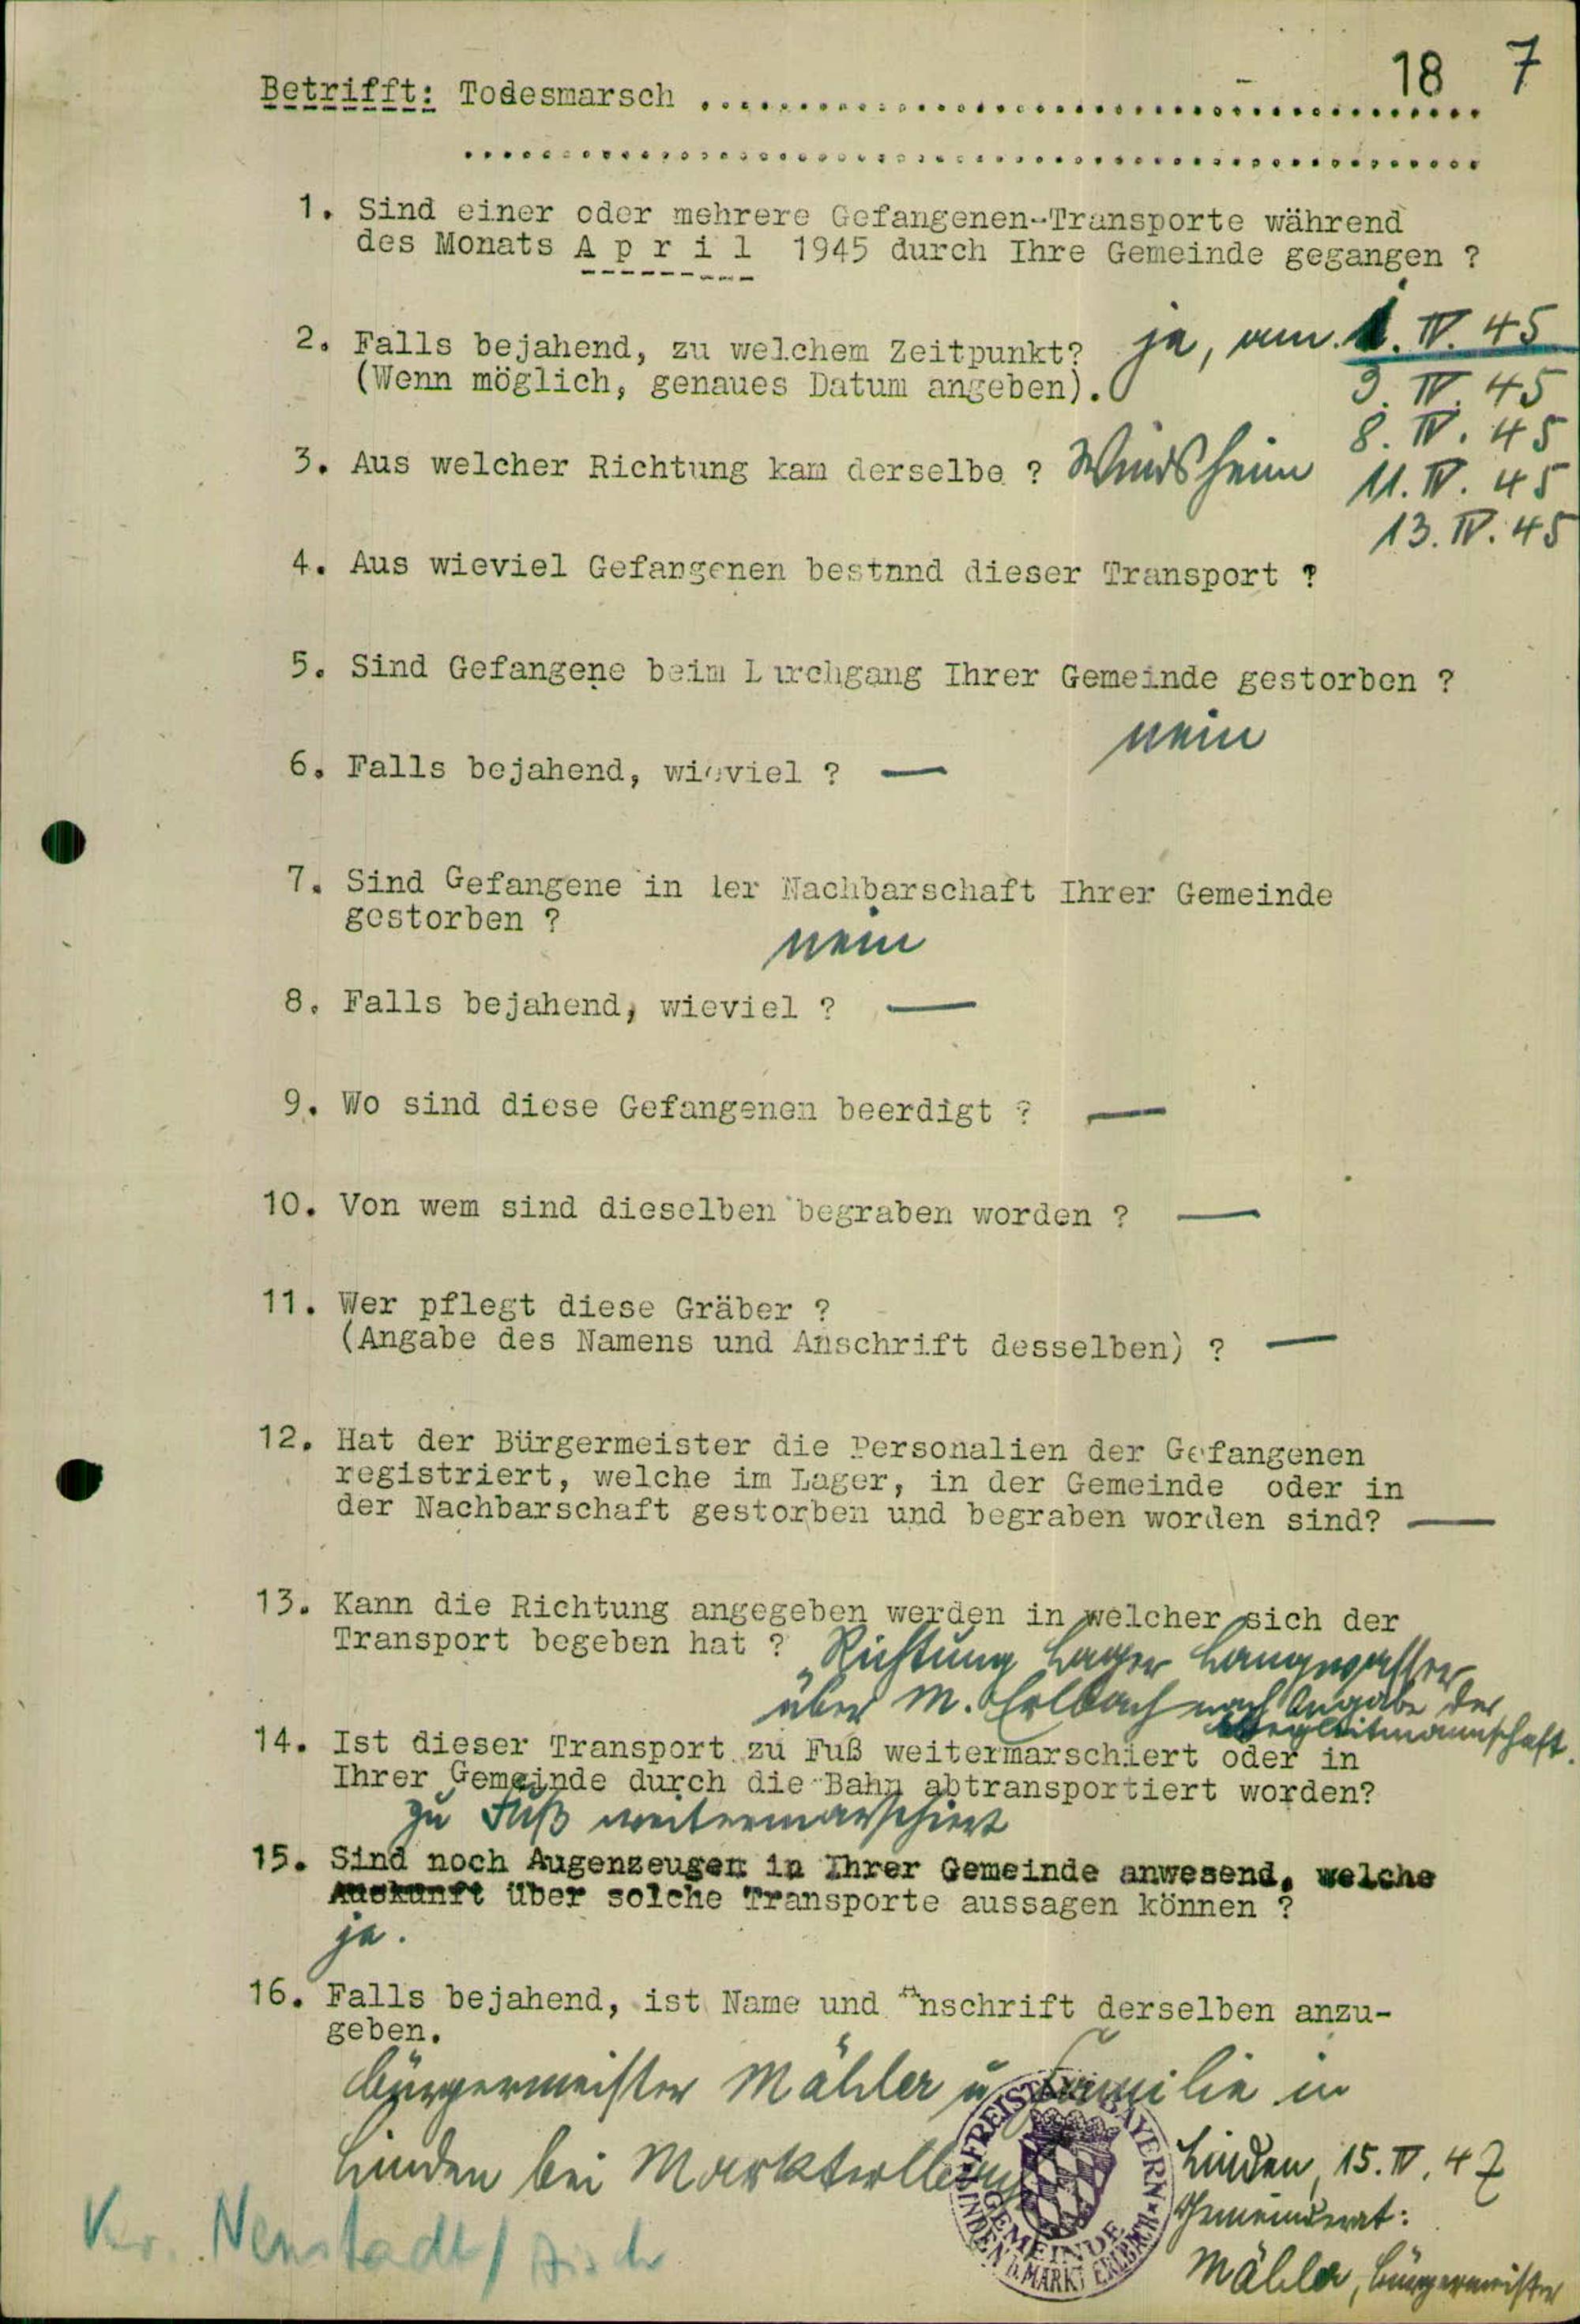 18 7
Betrifft: Todesmarsch ........................................
....................................................
1. Sind einer oder mehrere Gefangenen-Transporte während
des Monats A p r i l 1945 durch Ihre Gemeinde gegangen ?
2. Falls bejahend, zu welchem Zeitpunkt? ja, am . IV. 45
(Wenn möglich, genaues Datum angeben). 3. IV. 45
8. IV. 45
3. Aus welcher Richtung kam derselbe ? Windsheim 11. IV. 45
13. IV. 45
4. Aus wieviel Gefangenen bestand dieser Transport ?
5. Sind Gefangene beim Durchgang Ihrer Gemeinde gestorben ?
nein
6. Falls bejahend, wieviel ? —
7. Sind Gefangene in der Nachbarschaft Ihrer Gemeinde
gestorben ?
nein
8. Falls bejahend, wieviel ? —
9. Wo sind diese Gefangenen beerdigt ? —
10. Von wem sind dieselben begraben worden ? —
11. Wer pflegt diese Gräber ?
(Angabe des Namens und Anschrift desselben) ? —
12. Hat der Bürgermeister die Personalien der Gefangenen
registriert, welche im Lager, in der Gemeinde oder in
der Nachbarschaft gestorben und begraben worden sind? —
13. Kann die Richtung angegeben werden in welcher sich der
Transport begeben hat ? Richtung Lager Langwasser
über M. Erlbach nach Angabe der
Begleitmannschaft.
14. Ist dieser Transport zu Fuß weitermarschiert oder in
Ihrer Gemeinde durch die Bahn abtransportiert worden?
zu Fuß weitermarschiert
15. Sind noch Augenzeugen in Ihrer Gemeinde anwesend, welche
Auskunft über solche Transporte aussagen können ?
ja.
16. Falls bejahend, ist Name und Anschrift derselben anzu-
geben.
Bürgermeister Mähler u. Familie in
Linden bei Markterlbach
FREISTAAT BAYERN
GEMEINDE
LINDEN b. MARKT ERLBACH
Linden, 15. IV. 47
Gemeinderat:
Mähler, Bürgermeister
Kr. Neustadt / Aisch